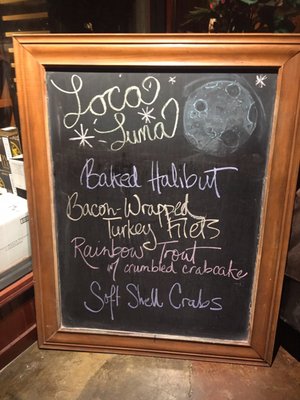 Loca
Luna
Baked Halibut
Bacon-Wrapped
Turkey Filets
Rainbow Trout
w/ crumbled crabcake
Soft Shell Crabs